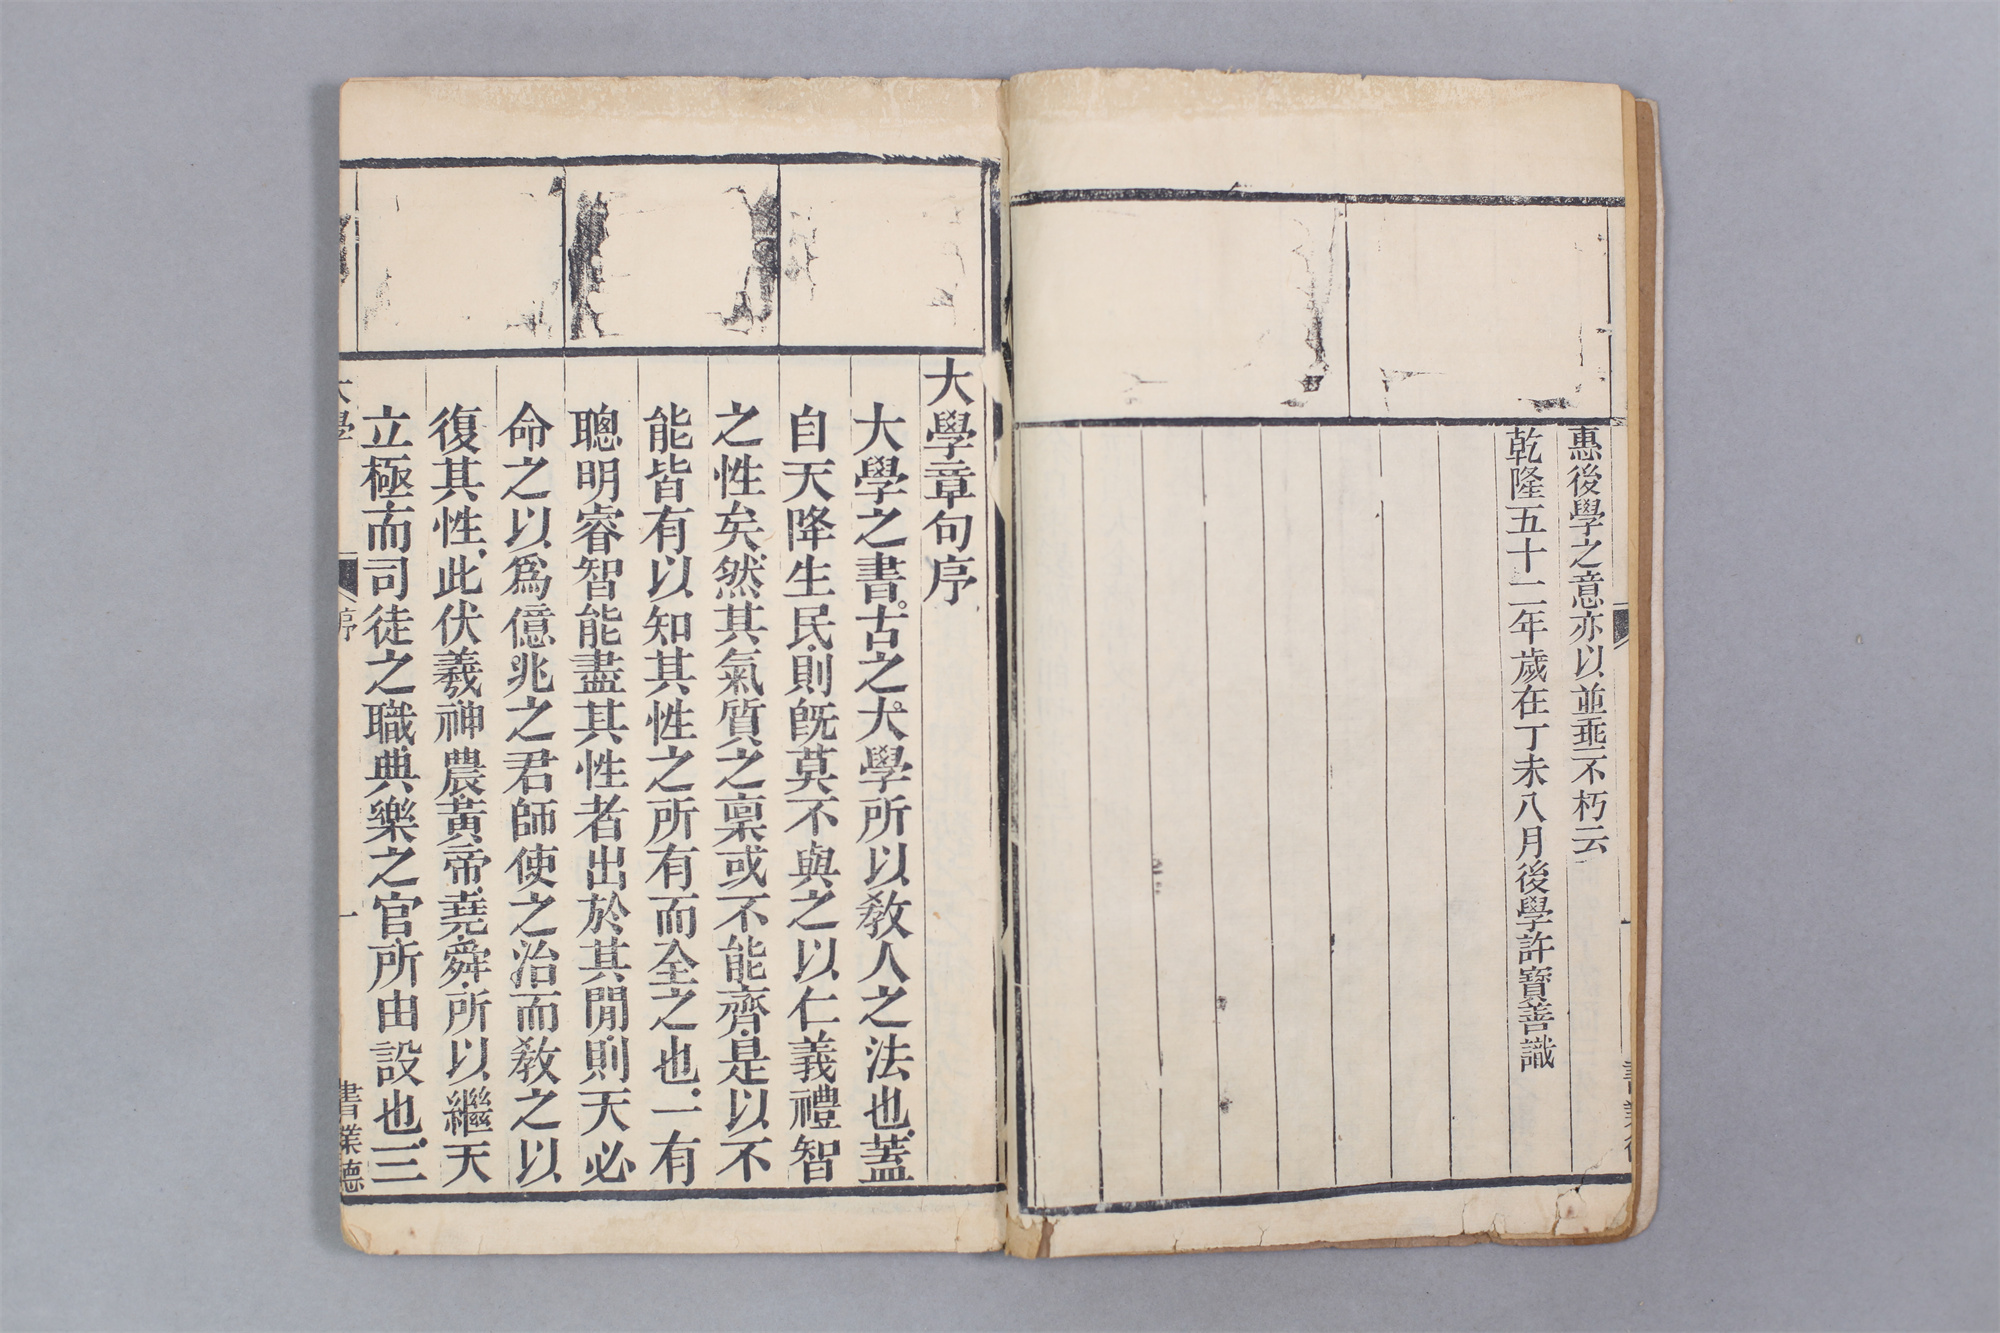 惠後學之意亦以並垂不朽云
乾隆五十二年歲在丁未八月後學許寶善識
大學章句序
大學之書。古之大學所以教人之法也。蓋
自天降生民則旣莫不與之以仁義禮智
之性矣。然其氣質之稟或不能齊是以不
能皆有以知其性之所有而全之也。一有
聰明睿智能盡其性者出於其閒則天必
命之以爲億兆之君師使之治而教之以
復其性。此伏羲神農黃帝堯舜所以繼天
立極而司徒之職典樂之官所由設也。三
大學
序
一
書業德